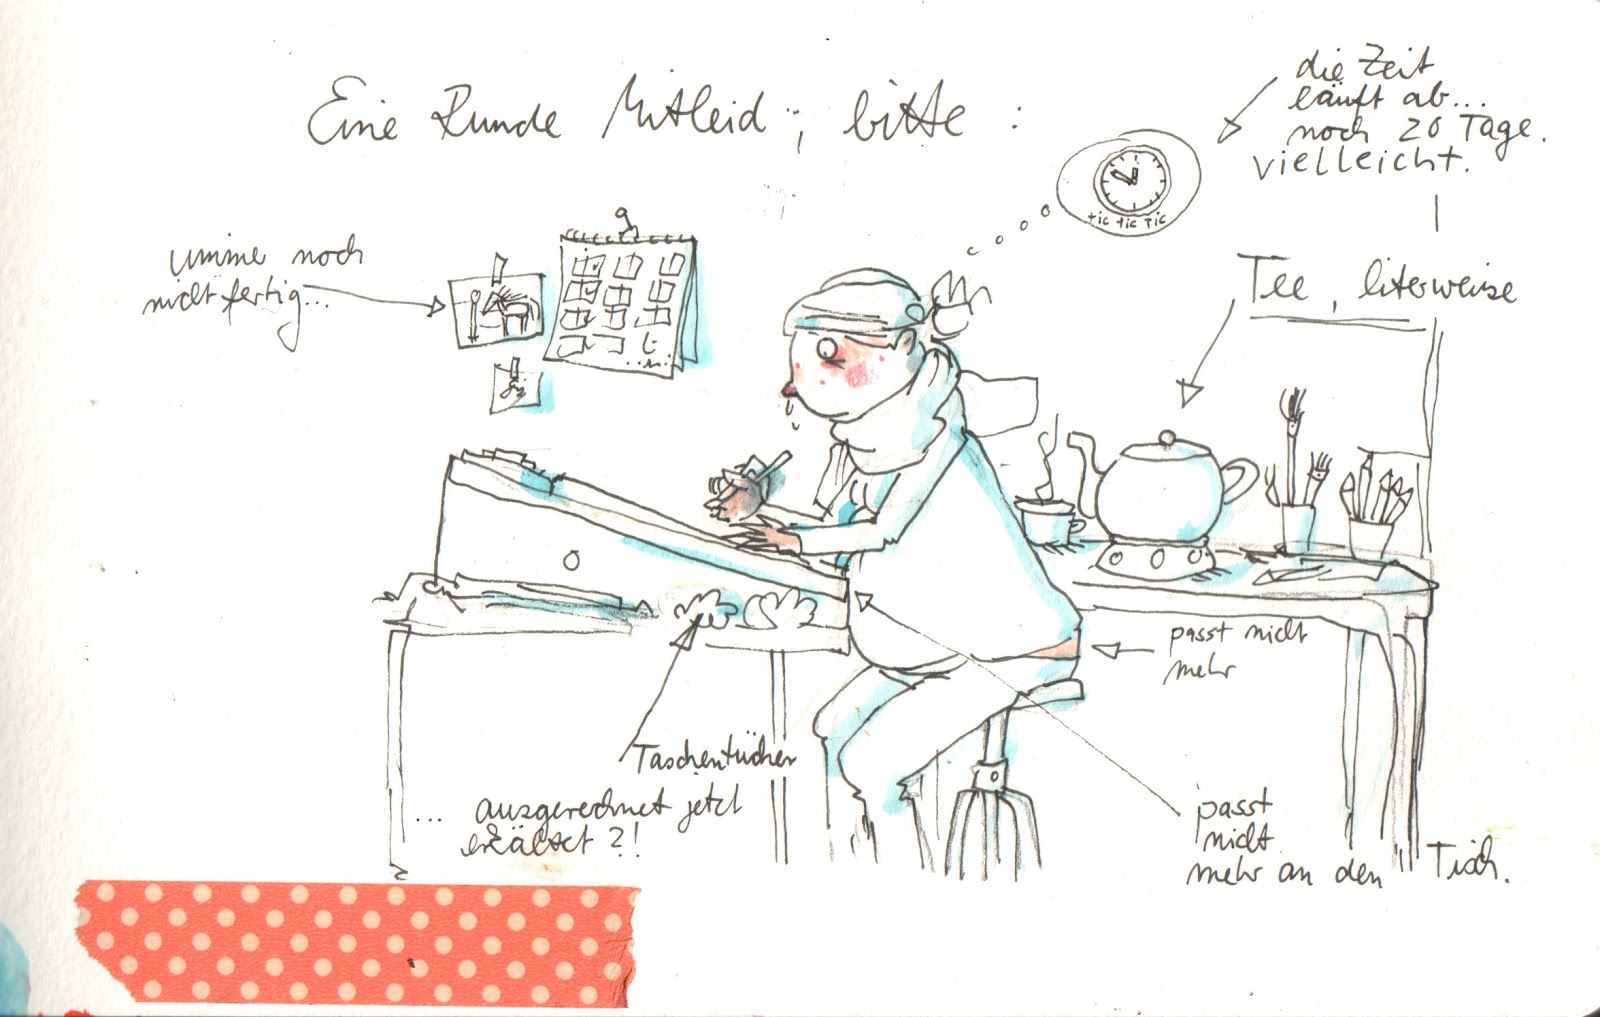 Eine Runde Mitleid, bitte :
die Zeit
läuft ab...
noch 20 Tage.
vielleicht.
tic tic tic
umme noch
nicht fertig...
Tee, literweise
passt nicht
mehr
Taschentücher
... ausgerechnet jetzt
erkältet ?!
passt
nicht
mehr an den Tisch.